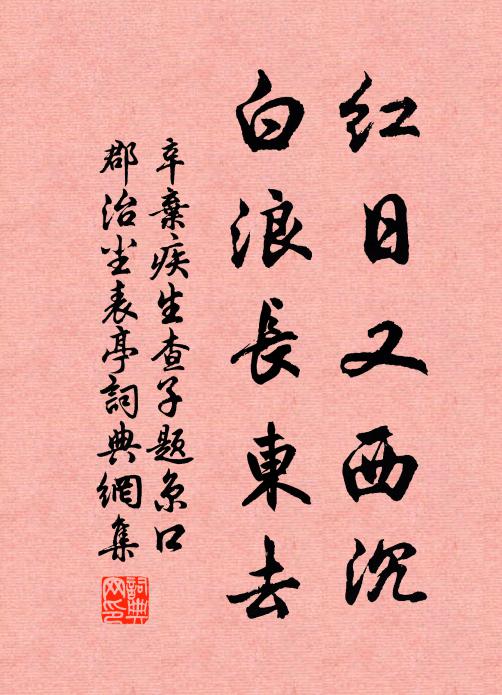 紅日又西沉
白浪長東去
辛棄疾生查子題京口
郡治尘表亭詞典網集
詞典网印